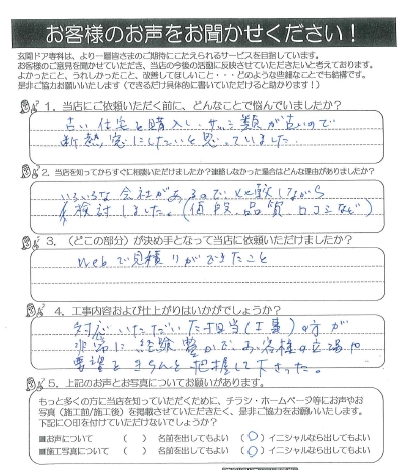 お客様のお声をお聞かせください！
玄関ドア専科は、より一層皆さまのご期待にこたえられるサービスを目指しています。
お客様のご意見を聞かせていただき、当店の今後の活動に反映させていただきたいと考えております。
よかったこと、うれしかったこと、改善してほしいこと・・・どのような些細なことでも結構です。
是非ご協力お願いいたします（できるだけ具体的に書いていただけると助かります！）
1．当店にご依頼いただく前に、どんなことで悩んでいましたか？
古い住宅を購入し、サッシ類が古いので
断熱窓にしたいと思っていました。
2．当店を知ってからすぐに相談いただけましたか？連絡しなかった場合はどんな理由がありましたか？
いろいろな会社があるので、比較しながら
検討しました。（値段、品質、口コミなど）
3．（どこの部分）が決め手となって当店に依頼いただけましたか？
webで見積りができたこと
4．工事内容および仕上がりはいかがでしょうか？
対応いただいた担当（工事）の方が
非常に経験豊かで、お客様の立場や
要望をきちんと把握して下さった。
5．上記のお声とお写真についてお願いがあります。
もっと多くの方に当店を知っていただくために、チラシ・ホームページ等にお声やお
写真（施工前/施工後）を掲載させていただきたく、是非ご協力をお願いいたします。
下記に○印を付けていただけないでしょうか？
■お声について （　）名前を出してもよい （○）イニシャルなら出してもよい
■施工写真について （　）名前を出してもよい （○）イニシャルなら出してもよい